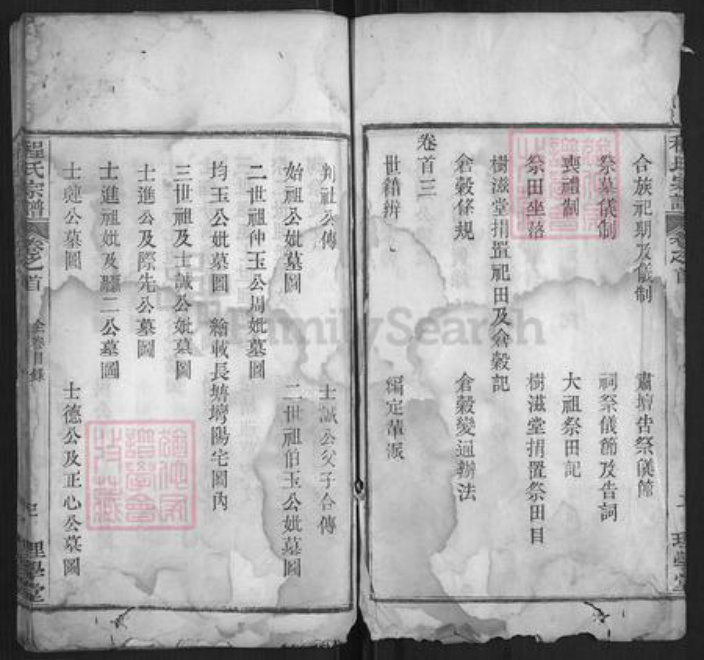 合族祀期及儀制 肅壇告祭儀節
祭墓儀制 祠祭儀節及告詞
喪禮制 大祖祭田記
祭田坐落 樹滋堂捐置祭田目
樹滋堂捐置祀田及倉穀記
倉穀條規 倉穀變通辦法
卷首三
世籍辨 編定輩派
判社公傳 士誠公父子合傳
始祖公妣墓圖 二世祖伯玉公妣墓圖
二世祖仲玉公周妣墓圖
均玉公妣墓圖 繪載長塘壪陽宅圖內
三世祖及士誠公妣墓圖
士進公及際先公墓圖
士進祖妣及二公墓圖
士璉公墓圖 士德公及正心公墓圖
程氏宗譜 卷之首 全卷目錄 理學堂
FamilySearch